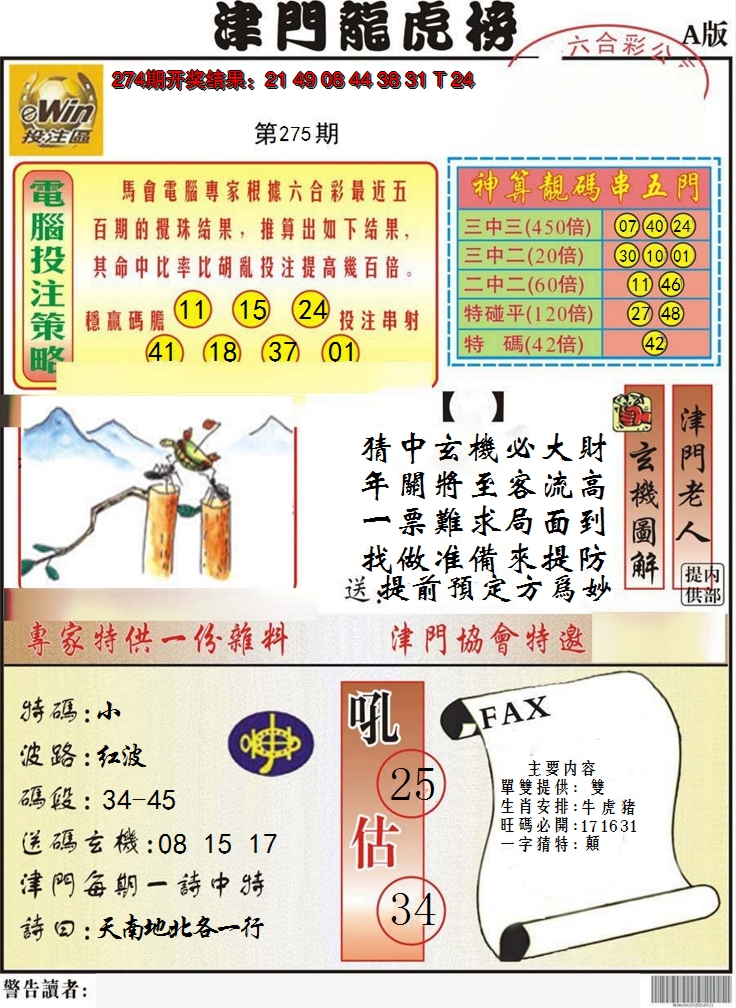 津門龍虎榜
六合彩公
A版
274期开奖结果：21 49 08 44 38 31 T 24
eWin
投注區
第275期
電腦投注策略
馬會電腦專家根據六合彩最近五
百期的攪珠结果，推算出如下结果，
其命中比率比胡亂投注提高幾百倍。
穩赢碼膽 11 15 24 投注串射
41 18 37 01
神算靚碼串五門
三中三(450倍) 07 40 24
三中二(20倍) 30 10 01
二中二(60倍) 11 46
特碰平(120倍) 27 48
特 碼(42倍) 42
【 】
猜中玄機必大財
年關將至客流高
一票難求局面到
找做准備來提防
送：提前預定方爲妙
玄機圖解
津門老人
内部提供
專家特供一份雜料
津門協會特邀
特碼：小
波路：红波
碼段：34-45
送碼玄機：08 15 17
津門每期一詩中特
詩曰：天南地北各一行
吼
25
估
34
FAX
主要内容
單雙提供：雙
生肖安排：牛虎豬
旺碼必開：171631
一字猜特：顛
警告讀者：